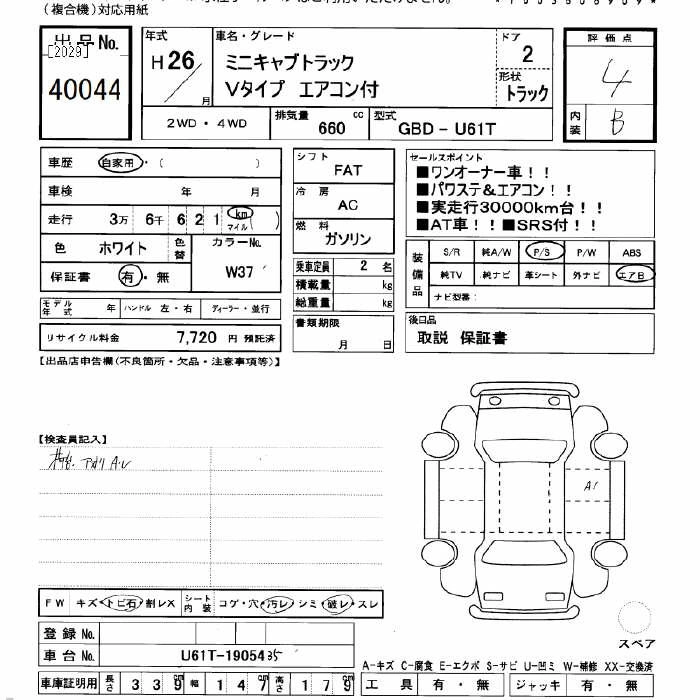 (複合機)対応用紙
出品No.
[2029]
40044
年式
H 26
月
車名・グレード
ミニキャブトラック
Vタイプ エアコン付
ドア
2
形状
トラック
評価点
4
内装
B
2WD・4WD
排気量
660 cc
型式
GBD - U61T
車歴 自家用・( )
車検 年 月
走行 3万 6千 6 2 1 km マイル ( )
色 ホワイト 色替
カラーNo.
W37
保証書 有・無
モデル年式 年 ハンドル 左・右 ディーラー・並行
リサイクル料金 7,720 円 預託済
シフト
FAT
冷房
AC
燃料
ガソリン
乗車定員 2 名
積載量 kg
総重量 kg
書類期限
月 日
セールスポイント
■ワンオーナー車!!
■パワステ&エアコン!!
■実走行30000km台!!
■AT車!!■SRS付!!
装備品
S/R 純A/W P/S P/W ABS
純TV 純ナビ 革シート 外ナビ エアB
ナビ型番:
後日品
取説 保証書
【出品店申告欄(不良箇所・欠品・注意事項等)】
【検査員記入】
アオリ A・レ
A1
FW キズ・トビ石・割レX シート内装 コゲ・穴・汚レ・シミ・破レ・スレ
登録No.
車台No. U61T-1905435
スペア
A-キズ C-腐食 E-エクボ S-サビ U-凹ミ W-補修 XX-交換済
車庫証明用 長さ 339cm 幅 147cm 高さ 179cm
工具 有・無 ジャッキ 有・無